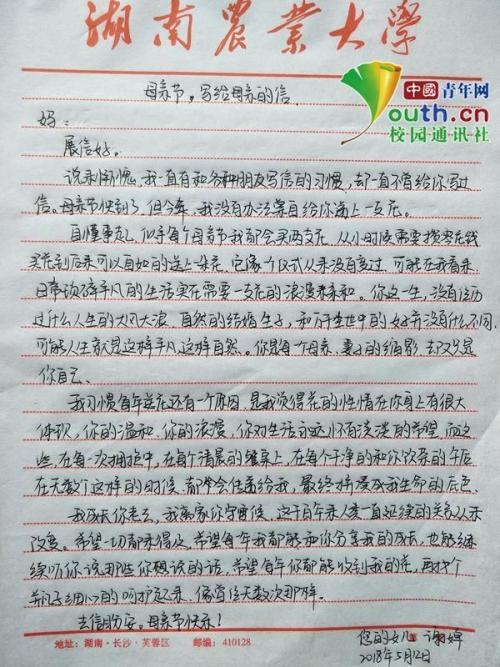 湖南农业大学
中國青年网
youth.cn
校园通讯社
母亲节，写给母亲的信.
妈：
展信好。
说来惭愧，我一直有和各种朋友写信的习惯，却一直不曾给你写过
信。母亲节快到了，但今年，我没办法亲自给你送上一支花。
自懂事起，似乎每个母亲节我都会买两支花，从小时候需要攒零花钱
买花到后来可以自如的送上一束花，它像个仪式从来没有变过，可能在我看来
日常琐碎平凡的生活实在需要一支花的浪漫来柔和。你这一生，没有经历
过什么人生的大风大浪，自然的结婚生子，和万千尘世中的好并没有什么不同，
可能人生就是这样平凡，这样自然。你是每个母亲、妻子的缩影，却又只是
你自己、
我习惯每年送花还有一个原因，是我觉得花的性情在你身上有很大
体现，你的温和，你的浪漫，你对生活永远怀有淡淡的希望，而这
些，在每一次拥抱中，在每个清晨的餐桌上，在每个干净的和你饮茶的午后
在无数个这样的时候，都会传递给我，最终将漫成我生命的底色。
我成长你老去，我离家你守候，这千百年来人类一直延续的关系从未
改变。希望一切都来得及，希望每年我都能和你分享我的成长，也能继
续听你说那些你想说的话，希望每年你都能收到我的花，再找个
瓶子细心的呵护起来，像曾经无数次那样。
去信助安，母亲节快乐！
您的女儿 谢婷
2018年5月12日
地址：湖南·长沙·芙蓉区 邮编：410128